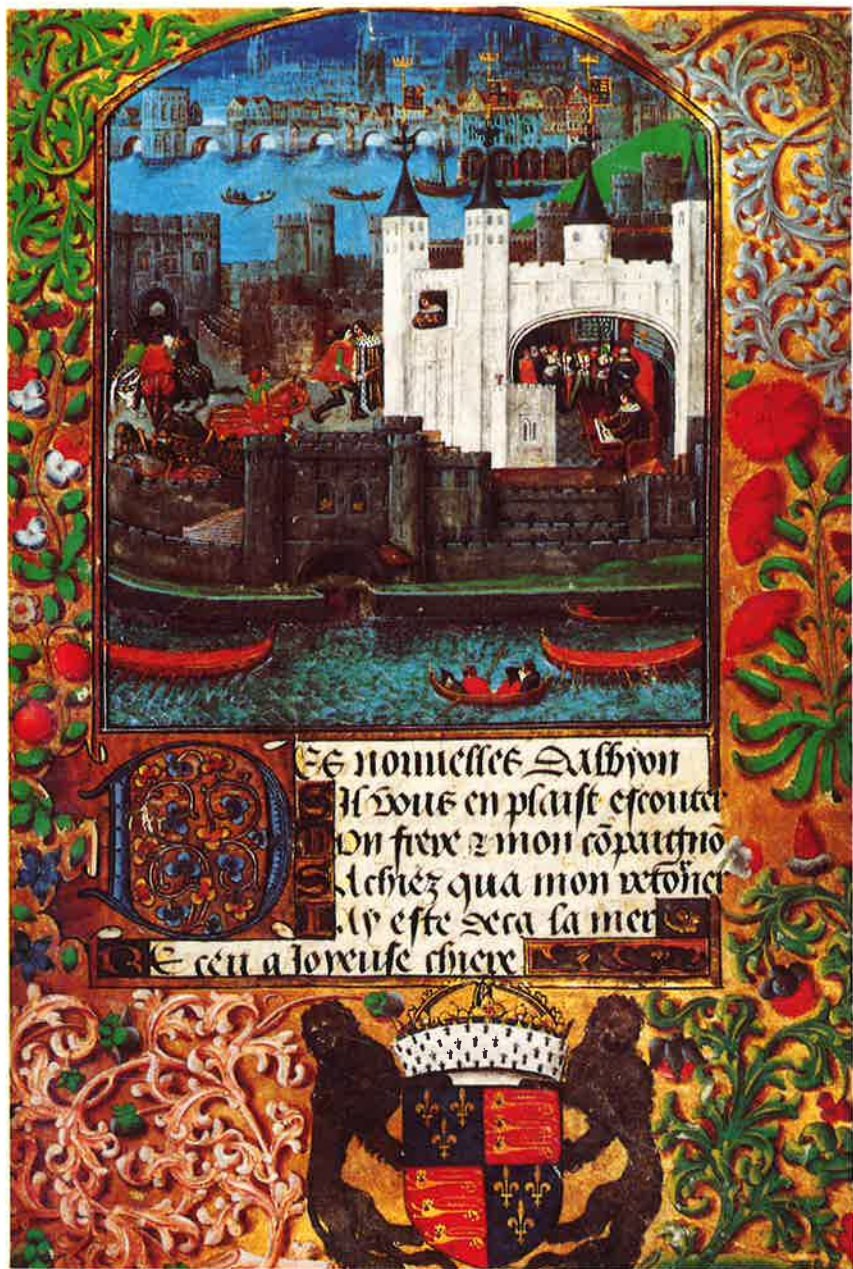 Des nouuelles dalbyon
Sil vous en plaist escouter
Mon frere & mon cōpaignō
Sachiez qua mon retōner
Lay este deca la mer
Receu a Joyeuse chiere